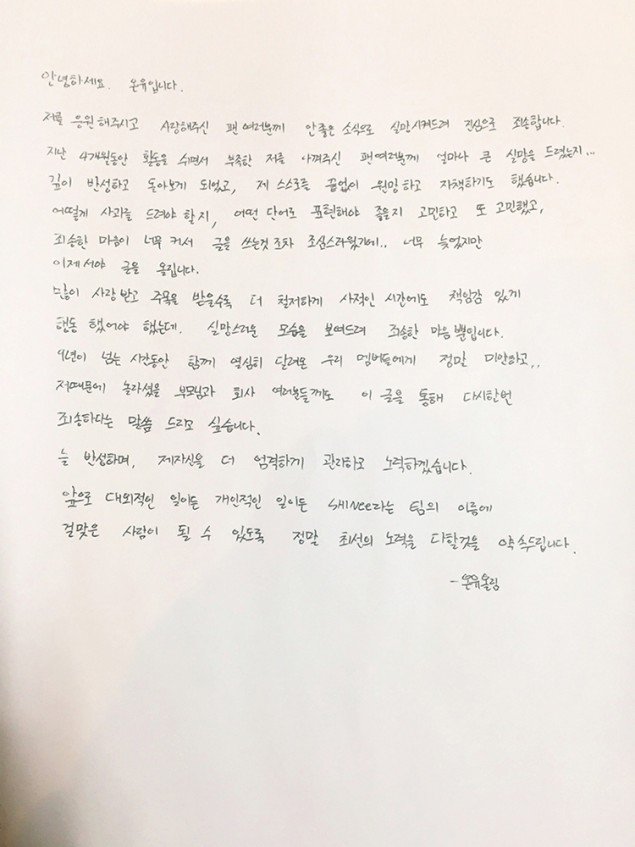 안녕하세요. 온유입니다.
저를 응원해주시고 사랑해주신 팬 여러분께 안좋은 소식으로 실망시켜드려 진심으로 죄송합니다.
지난 4개월동안 활동을 쉬면서 부족한 저를 아껴주신 팬여러분께 얼마나 큰 실망을 드렸는지...
깊이 반성하고 돌아보게 되었고, 제 스스로를 끝없이 원망하고 자책하기도 했습니다.
어떻게 사과를 드려야 할지, 어떤 단어로 표현해야 좋을지 고민하고 또 고민했고,
죄송한 마음이 너무 커서 글을 쓰는것 조차 조심스러웠기에.. 너무 늦었지만
이제서야 글을 올립니다.
많이 사랑 받고 주목을 받을수록 더 철저하게 사적인 시간에도 책임감 있게
행동 했어야 했는데. 실망스러운 모습을 보여드려 죄송한 마음 뿐입니다.
9년이 넘는 시간동안 함께 열심히 달려온 우리 멤버들에게 정말 미안하고,,
저때문에 놀라셨을 부모님과 회사 여러분들께도 이 글을 통해 다시한번
죄송하다는 말씀 드리고 싶습니다.
늘 반성하며, 제자신을 더 엄격하게 관리하고 노력하겠습니다.
앞으로 대외적인 일이든 개인적인 일이든 SHINee라는 팀의 이름에
걸맞은 사람이 될 수 있도록 정말 최선의 노력을 다할것을 약속드립니다.
- 온유올림